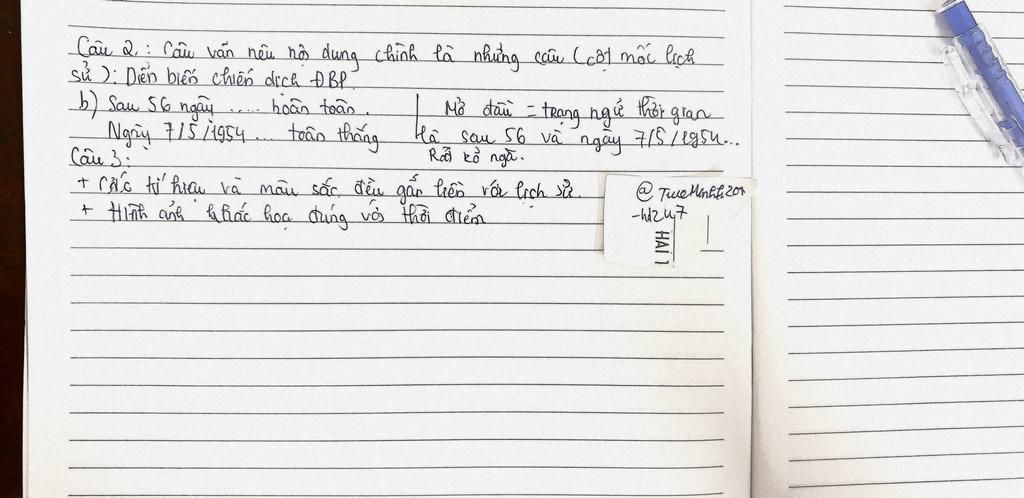 Câu 2 : Câu văn nêu nộ dung chính là những câu (cột mốc lịch
sử ) : Diễn biến chiến dịch ĐBP.
b) Sau 56 ngày ..... hoàn toàn. | Mở đầu = trạng ngữ thời gian
Ngày 7/5/1954 ... toàn thắng | là sau 56 và ngày 7/5/1954...
Câu 3 :
+ Các kí hiệu và màu sắc đều gắn liền với lịch sử.
+ Hình ảnh khắc họa đúng với thời điểm
HAI